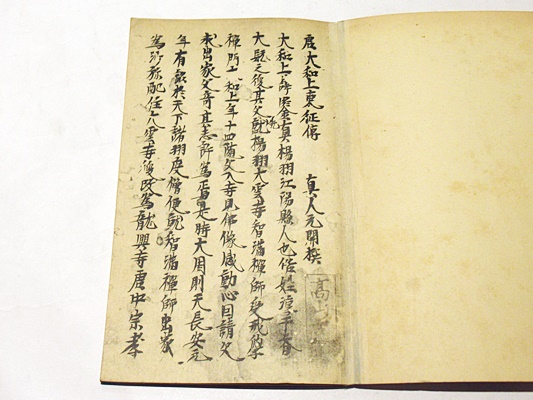 唐大和上東征傳　真人元開撰
大和上諱鑒真楊州江陽縣人也俗姓淳于齊
大髡之後其父先就楊州大雲寺智滿禪師受戒學
禪門大和上年十四隨父入寺見佛像感動心因請父
求出家父奇其志許焉是時大周則天長安元
年有詔於天下諸州度僧便就智滿禪師出家
為沙弥配住大雲寺後改為龍興寺唐中宗孝
高山